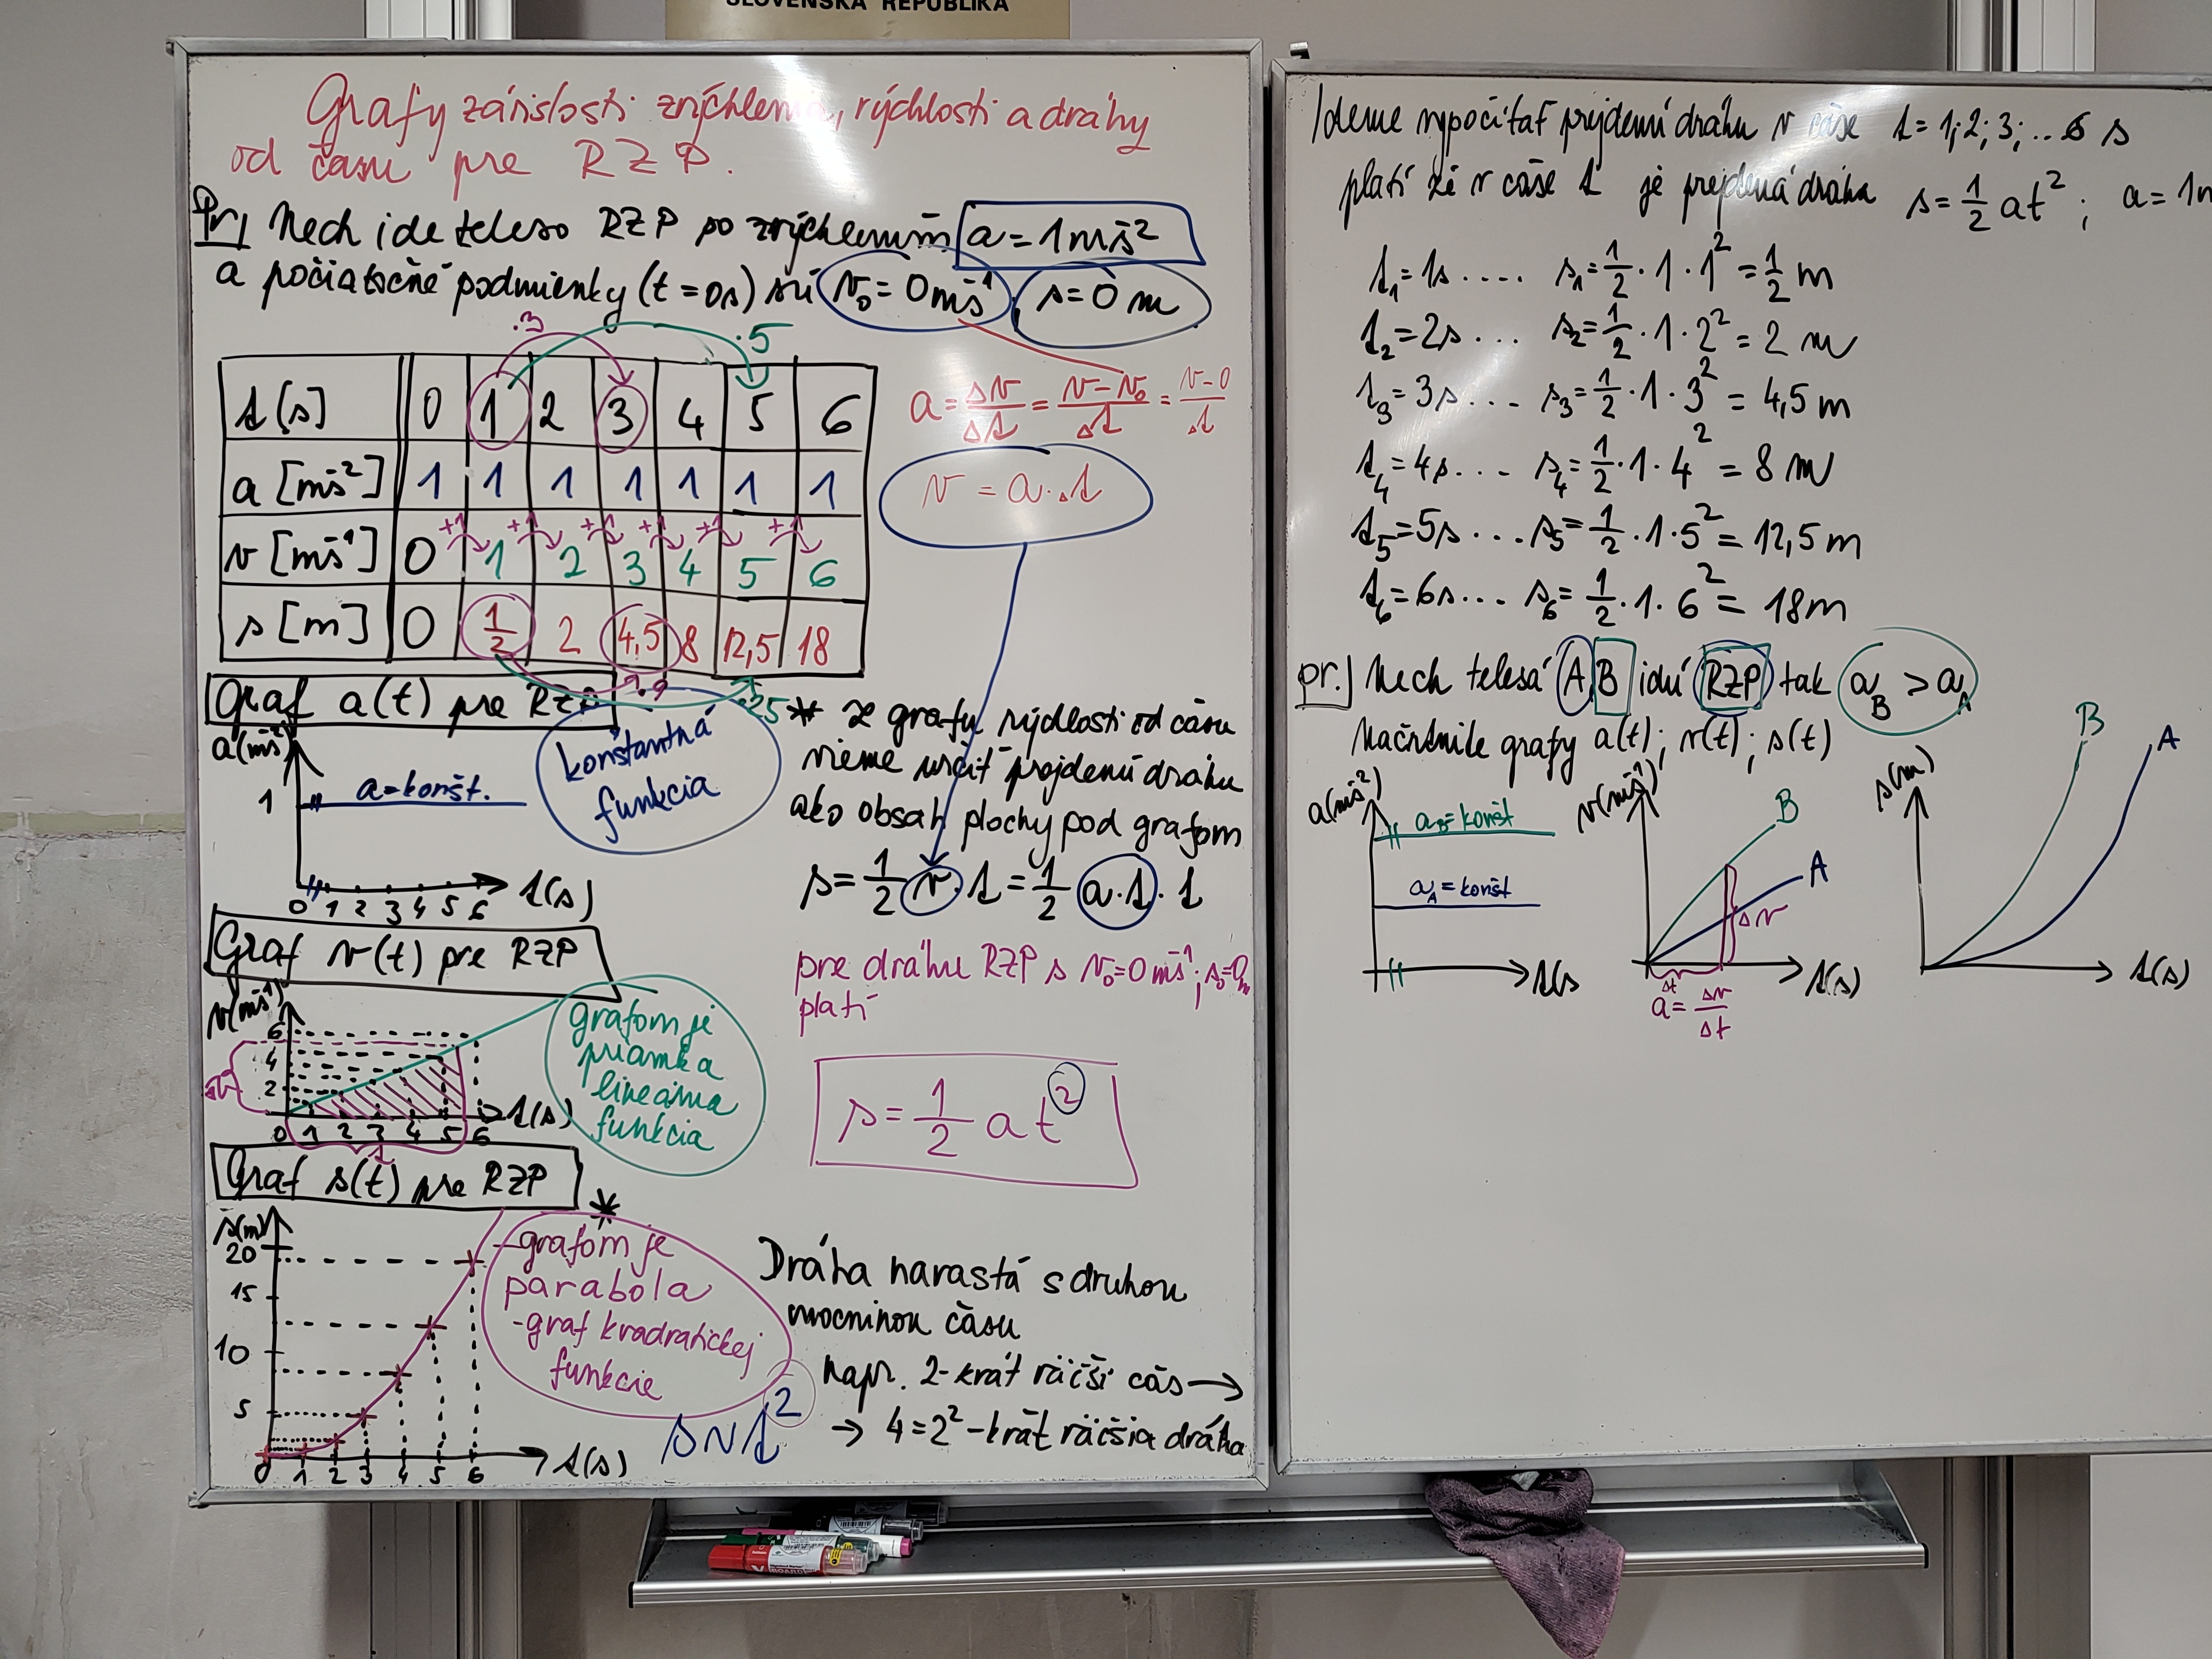 SLOVENSKÁ REPUBLIKA
Grafy závislosti zrýchlenia, rýchlosti a dráhy
od času pre RZP.
Pr] Nech ide teleso RZP so zrýchlením a = 1 ms⁻²
a počiatočné podmienky (t = 0s) sú v₀ = 0 ms⁻¹, s = 0 m
·3 ·5
t [s] 0 1 2 3 4 5 6
a [ms⁻²] 1 1 1 1 1 1 1
+1 +1 +1 +1 +1 +1
v [ms⁻¹] 0 1 2 3 4 5 6
s [m] 0 1/2 2 4,5 8 12,5 18
·9 ·25
a = Δv/Δt = v − v₀/Δt = v − 0/Δt
v = a · Δt
Graf a(t) pre RZP
a(ms⁻²)
1 a = konšt.
0 1 2 3 4 5 6 t(s)
konštantná
funkcia
* z grafu rýchlosti od času
vieme určiť prejdenú dráhu
ako obsah plochy pod grafom
s = 1/2 v · t = 1/2 a · t · t
Graf v(t) pre RZP
v(ms⁻¹)
6
4
2
t(s)
0 1 2 3 4 5 6
t
grafom je
priamka
lineárna
funkcia
pre dráhu RZP s v₀ = 0 ms⁻¹; s₀ = 0 m
platí
s = 1/2 a t²
Graf s(t) pre RZP
*
s(m)
20
15
10
5
0 1 2 3 4 5 6 t(s)
- grafom je
parabola
- graf kvadratickej
funkcie
s ~ t²
Dráha narastá s druhou
mocninou času
napr. 2-krát väčší čas →
→ 4 = 2² - krát väčšia dráha
Ideme vypočítať prejdenú dráhu v čase t = 1; 2; 3; .. 6 s
platí že v čase t je prejdená dráha s = 1/2 at² ; a = 1m
t₁ = 1s .... s₁ = 1/2 · 1 · 1² = 1/2 m
t₂ = 2s ... s₂ = 1/2 · 1 · 2² = 2 m
t₃ = 3s ... s₃ = 1/2 · 1 · 3² = 4,5 m
t₄ = 4s ... s₄ = 1/2 · 1 · 4² = 8 m
t₅ = 5s ... s₅ = 1/2 · 1 · 5² = 12,5 m
t₆ = 6s ... s₆ = 1/2 · 1 · 6² = 18 m
pr.] Nech telesá A, B idú RZP tak a_B > a_A
Načrtnite grafy a(t); v(t); s(t)
a(ms⁻²)
a_B = konšt
a_A = konšt
t(s
v(ms⁻¹)
B
A
Δv
Δt
t(s)
a = Δv/Δt
s(m)
B
A
t(s)